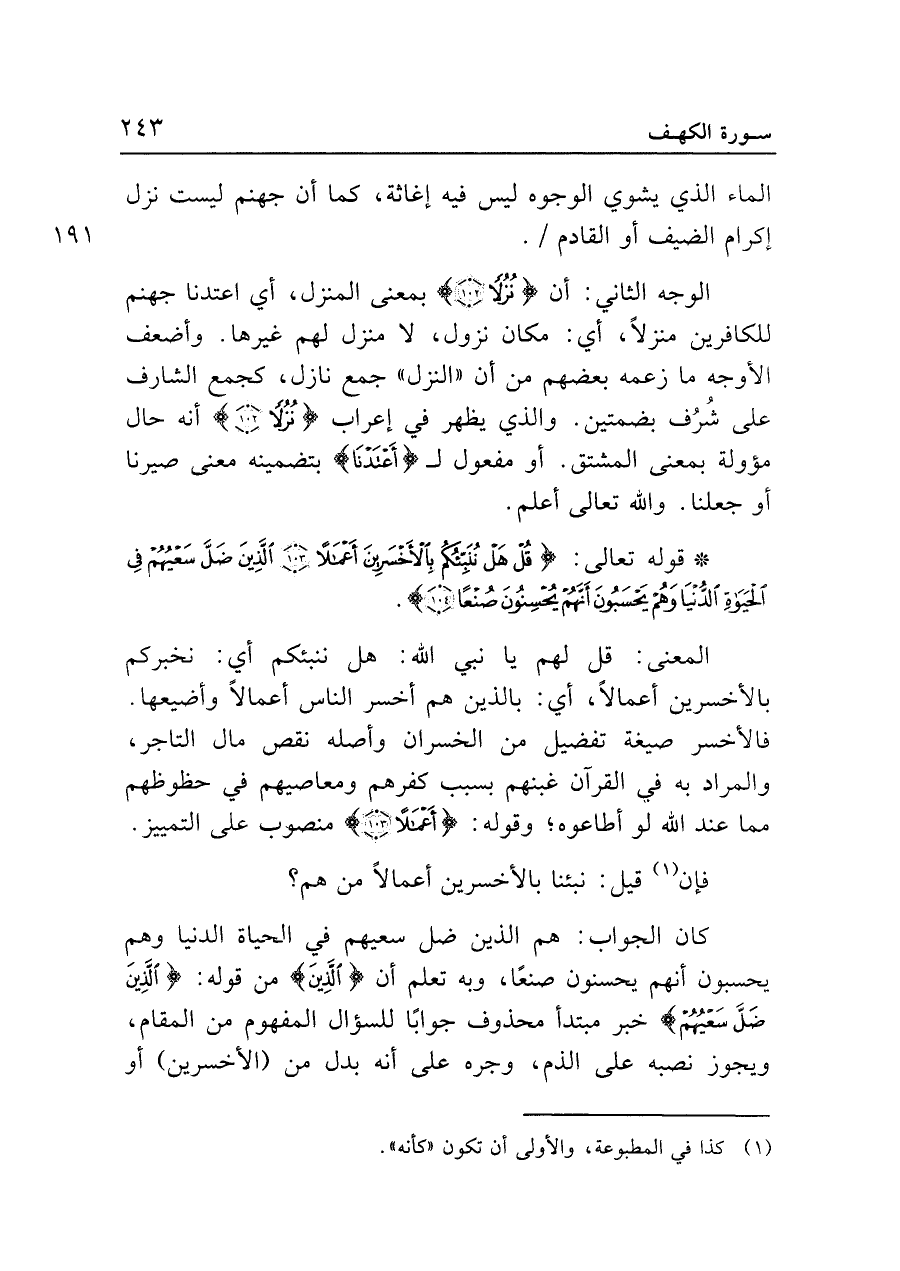 سورة الكهف ٢٤٣
الماء الذي يشوي الوجوه ليس فيه إغاثة، كما أن جهنم ليست نزل
إكرام الضيف أو القادم / . ١٩١
الوجه الثاني: أن ﴿ نُزُلًا ١٠٢﴾ بمعنى المنزل، أي اعتدنا جهنم
للكافرين منزلاً، أي: مكان نزول، لا منزل لهم غيرها. وأضعف
الأوجه ما زعمه بعضهم من أن «النزل» جمع نازل، كجمع الشارف
على شُرُف بضمتين. والذي يظهر في إعراب ﴿ نُزُلًا ١٠٢﴾ أنه حال
مؤولة بمعنى المشتق. أو مفعول لـ ﴿أَعْتَدْنَا﴾ بتضمينه معنى صيرنا
أو جعلنا. والله تعالى أعلم.
* قوله تعالى: ﴿ قُلْ هَلْ نُنَبِّئُكُم بِٱلْأَخْسَرِينَ أَعْمَٰلًا ١٠٣ ٱلَّذِينَ ضَلَّ سَعْيُهُمْ فِى
ٱلْحَيَوٰةِ ٱلدُّنْيَا وَهُمْ يَحْسَبُونَ أَنَّهُمْ يُحْسِنُونَ صُنْعًا ١٠٤﴾.
المعنى: قل لهم يا نبي الله: هل ننبئكم أي: نخبركم
بالأخسرين أعمالاً، أي: بالذين هم أخسر الناس أعمالاً وأضيعها.
فالأخسر صيغة تفضيل من الخسران وأصله نقص مال التاجر،
والمراد به في القرآن غبنهم بسبب كفرهم ومعاصيهم في حظوظهم
مما عند الله لو أطاعوه؛ وقوله: ﴿أَعْمَٰلًا ١٠٣﴾ منصوب على التمييز.
فإن(١) قيل: نبئنا بالأخسرين أعمالاً من هم؟
كان الجواب: هم الذين ضل سعيهم في الحياة الدنيا وهم
يحسبون أنهم يحسنون صنعًا، وبه تعلم أن ﴿ ٱلَّذِينَ﴾ من قوله: ﴿ ٱلَّذِينَ
ضَلَّ سَعْيُهُمْ﴾ خبر مبتدأ محذوف جوابًا للسؤال المفهوم من المقام،
ويجوز نصبه على الذم، وجره على أنه بدل من (الأخسرين) أو
(١) كذا في المطبوعة، والأولى أن تكون «كأنه».